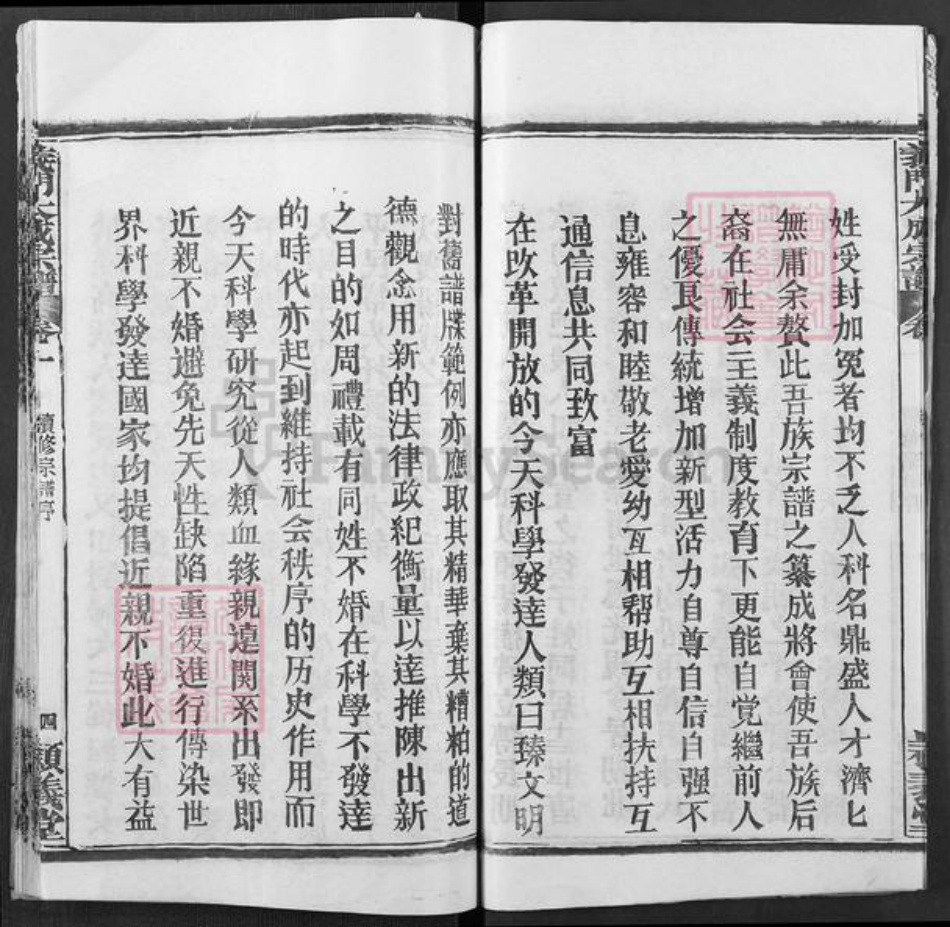 姓受封加冕者均不乏人科名鼎盛人才濟匕
無庸余贅此吾族宗譜之纂成將會使吾族后
裔在社会主義制度教育下更能自觉繼前人
之優良傳統增加新型活力自尊自信自强不
息雍容和睦敬老愛幼互相帮助互相扶持互
通信息共同致富
在改革開放的今天科學發達人類日臻文明
對舊譜牒範例亦應取其精華棄其糟粕的道
德觀念用新的法律政紀衡量以達推陳出新
之目的如周禮載有同姓不婚在科學不發達
的時代亦起到維持社会秩序的历史作用而
今天科學研究從人類血緣親遠関系出發即
近親不婚避免先天性缺陷重復進行傳染世
界科學發達國家均提倡近親不婚此大有益
義門大成宗譜
卷一
續修宗譜序
四
顯義堂
FamilySearch